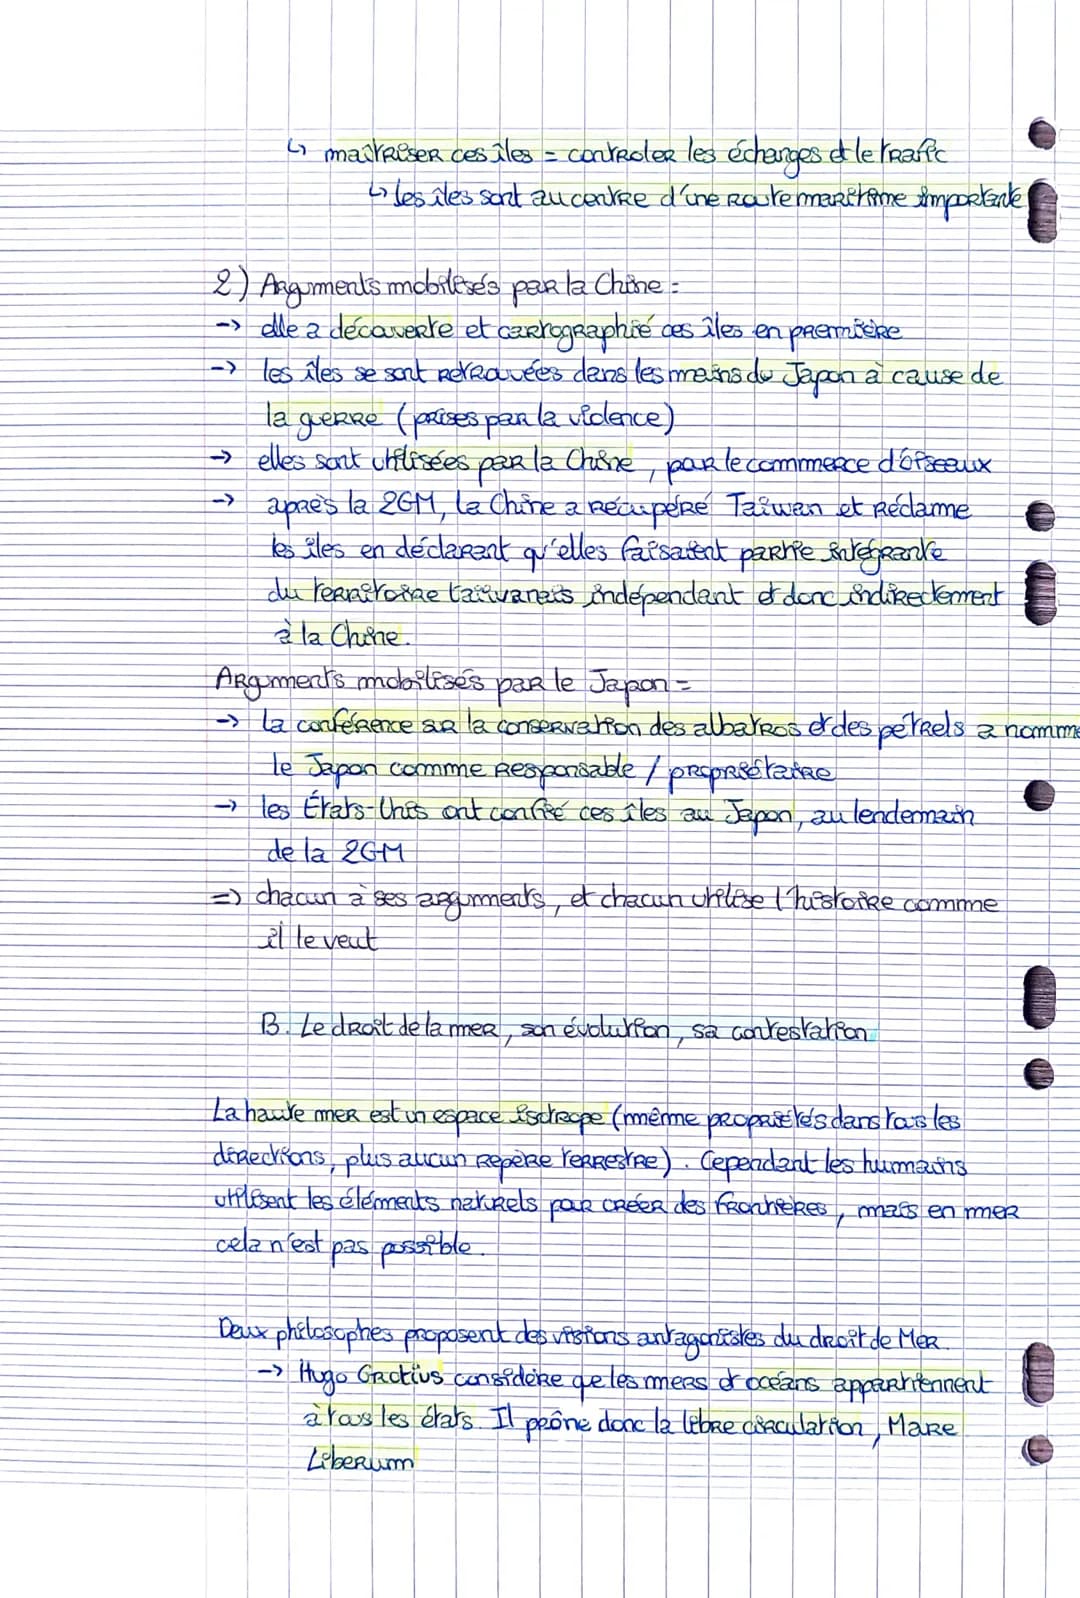 ↳ maîtriser ces îles = controler les échanges et le trafic
↳ les îles sont au centre d'une route maritime importante
2) Arguments mobilisés par la Chine :
-> elle a découverte et cartographié ces îles en première
-> les îles se sont retrouvées dans les mains du Japon à cause de
la guerre (prises par la violence)
-> elles sont utilisées par la Chine, par le commerce d'oiseaux
-> après la 2GM, la Chine a récupéré Taïwan et réclame
les îles en déclarant qu'elles faisaient partie intégrante
du territoire taïwanais indépendant et donc indirectement
à la Chine.
Arguments mobilisés par le Japon =
-> la conférence sur la conservation des albatros et des pétrels a nommé
le Japon comme responsable / propriétaire
-> les États-Unis ont confié ces îles au Japon, au lendemain
de la 2GM
=> chacun à ses arguments, et chacun utilise l'histoire comme
il le veut
B. Le droit de la mer, son évolution, sa contestation
La haute mer est un espace isotrope (même propriétés dans tous les
directions, plus aucun repère terrestre). Cependant les humains
utilisent les éléments naturels pour créer des frontières, mais en mer
cela n'est pas possible.
Deux philosophes proposent des visions antagonistes du droit de Mer.
-> Hugo Grotius considère que les mers et océans appartiennent
à tous les états. Il prône donc la libre circulation, Mare
Liberum